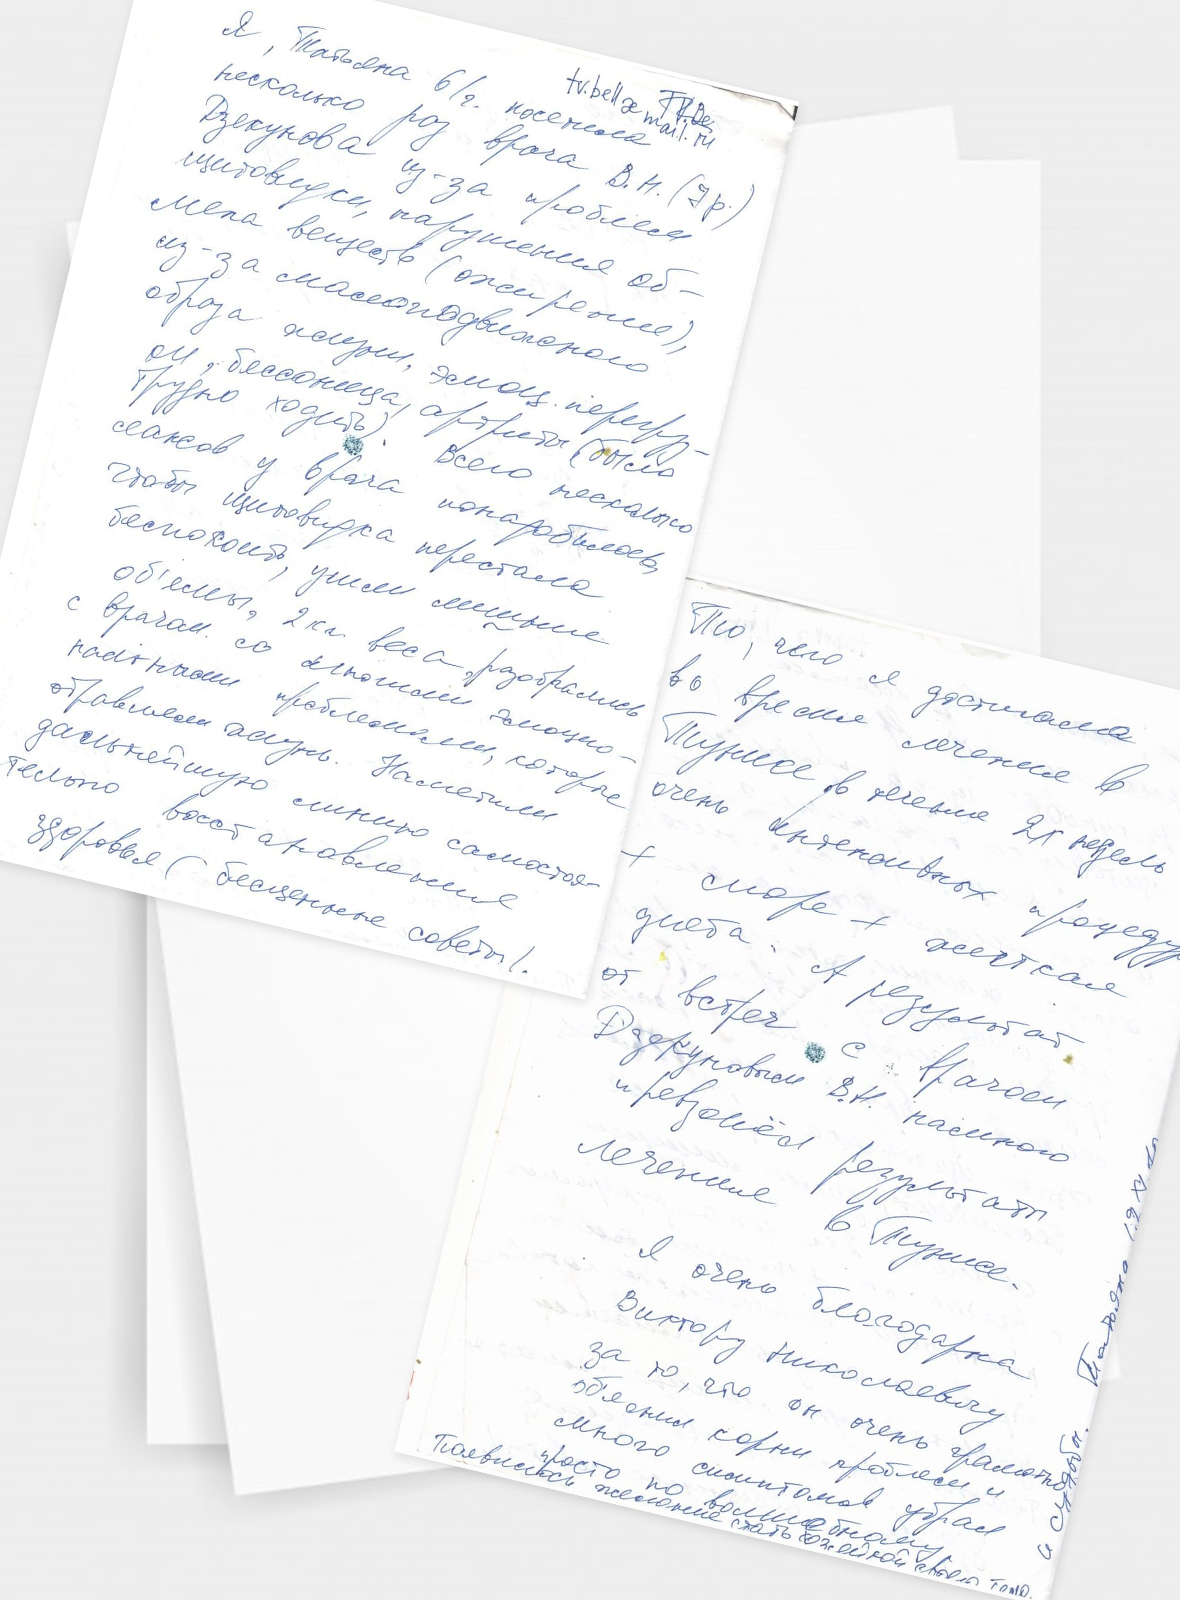 Я, Татьяна 61г. посетила
tv.bell@mail.ru
несколько раз врача В.Н. (7р.)
Дзекунова из-за проблем
щитовидки, нарушения об-
мена веществ (ожирение),
из-за малоподвижного
образа жизни, эмоц. перегруз-
ои, бессоница, артриты (было
трудно ходить). Всего несколько
сеансов у врача понадобилось,
чтобы щитовидка перестала
беспокоить, ушли лишние
объёмы, 2 кг. веса, разобрались
с врачом со многими эмоцио-
нальными проблемами, которые
отравляли жизнь. Наметили
дальнейшую линию самостоя-
тельно восстановления
здоровья (бесценные советы!.
То, чего я достигала
во время лечения в
Тунисе в течение 2х недель
очень интенсивных процедур
+ море + жесткая
диета. А результат
от встреч с врачом
Дзекуновым В.Н. намного
превзошёл результаты
лечения в Тунисе.
Я очень благодарна
Виктору Николаевичу
за то, что он очень грамотно
объяснил корни проблем и
много симптомов убрал
просто по волшебному.
Появилось желание стать хозяйкой своего тела
и судьбы. Татьяна